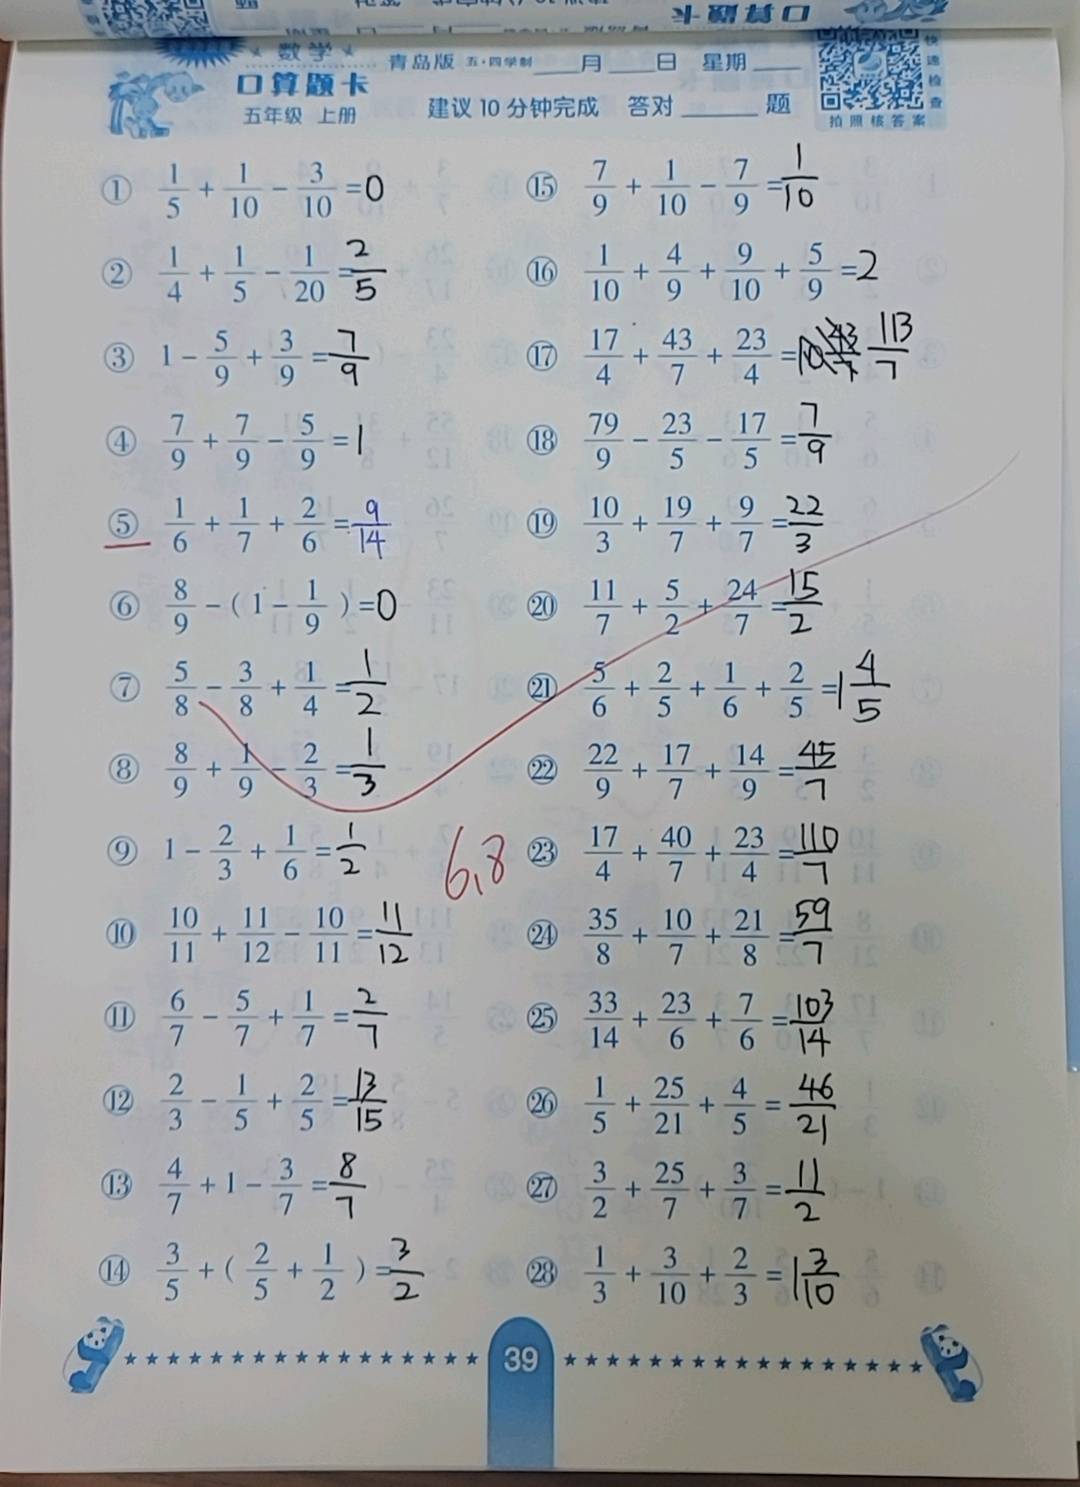 口算题卡
数学 青岛版 五·四学制 ____月____日 星期____
口算题卡
五年级 上册 建议10分钟完成 答对______题
快速检查
拍照核答案
① 1/5 + 1/10 - 3/10 = 0
② 1/4 + 1/5 - 1/20 = 2/5
③ 1 - 5/9 + 3/9 = 7/9
④ 7/9 + 7/9 - 5/9 = 1
⑤ 1/6 + 1/7 + 2/6 = 9/14
⑥ 8/9 - ( 1 - 1/9 ) = 0
⑦ 5/8 - 3/8 + 1/4 = 1/2
⑧ 8/9 + 1/9 - 2/3 = 1/3
⑨ 1 - 2/3 + 1/6 = 1/2
⑩ 10/11 + 11/12 - 10/11 = 11/12
⑪ 6/7 - 5/7 + 1/7 = 2/7
⑫ 2/3 - 1/5 + 2/5 = 13/15
⑬ 4/7 + 1 - 3/7 = 8/7
⑭ 3/5 + ( 2/5 + 1/2 ) = 3/2
6,8
⑮ 7/9 + 1/10 - 7/9 = 1/10
⑯ 1/10 + 4/9 + 9/10 + 5/9 = 2
⑰ 17/4 + 43/7 + 23/4 = 113/7
⑱ 79/9 - 23/5 - 17/5 = 7/9
⑲ 10/3 + 19/7 + 9/7 = 22/3
⑳ 11/7 + 5/2 + 24/7 = 15/2
㉑ 5/6 + 2/5 + 1/6 + 2/5 = 1 4/5
㉒ 22/9 + 17/7 + 14/9 = 45/7
㉓ 17/4 + 40/7 + 23/4 = 110/7
㉔ 35/8 + 10/7 + 21/8 = 59/7
㉕ 33/14 + 23/6 + 7/6 = 103/14
㉖ 1/5 + 25/21 + 4/5 = 46/21
㉗ 3/2 + 25/7 + 3/7 = 11/2
㉘ 1/3 + 3/10 + 2/3 = 1 3/10
39